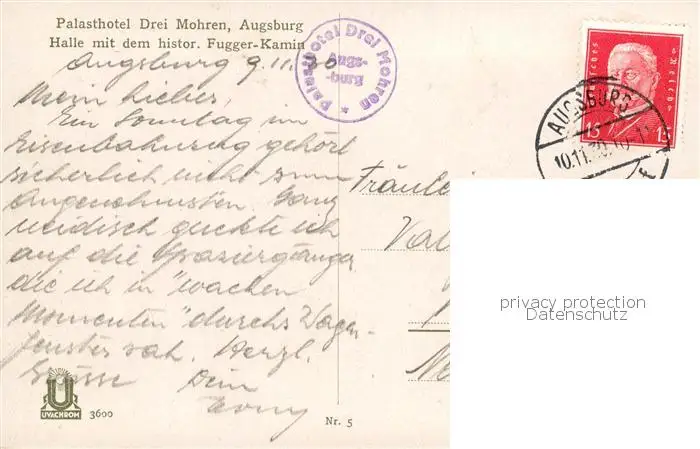 Palasthotel Drei Mohren, Augsburg
Halle mit dem histor. Fugger-Kamin
Augsburg 9.11.30
Palasthotel Drei Mohren
Augs-
-burg
Deutsches Reich
15 15
AUGSBURG
10.11.30.10-11
Mein Lieber,
Ein Sonntag im
Eisenbahnzug gehört
sicherlich nicht zum
Angenehmsten. Ganz
neidisch guckte ich
auf die Spaziergänger
die ich in "wachen
Momenten" durchs Wagen-
fenster sah. Herzl.
Grüsse Dein
Fräulei
Val
privacy protection
Datenschutz
UVACHROM
3600
Nr. 5